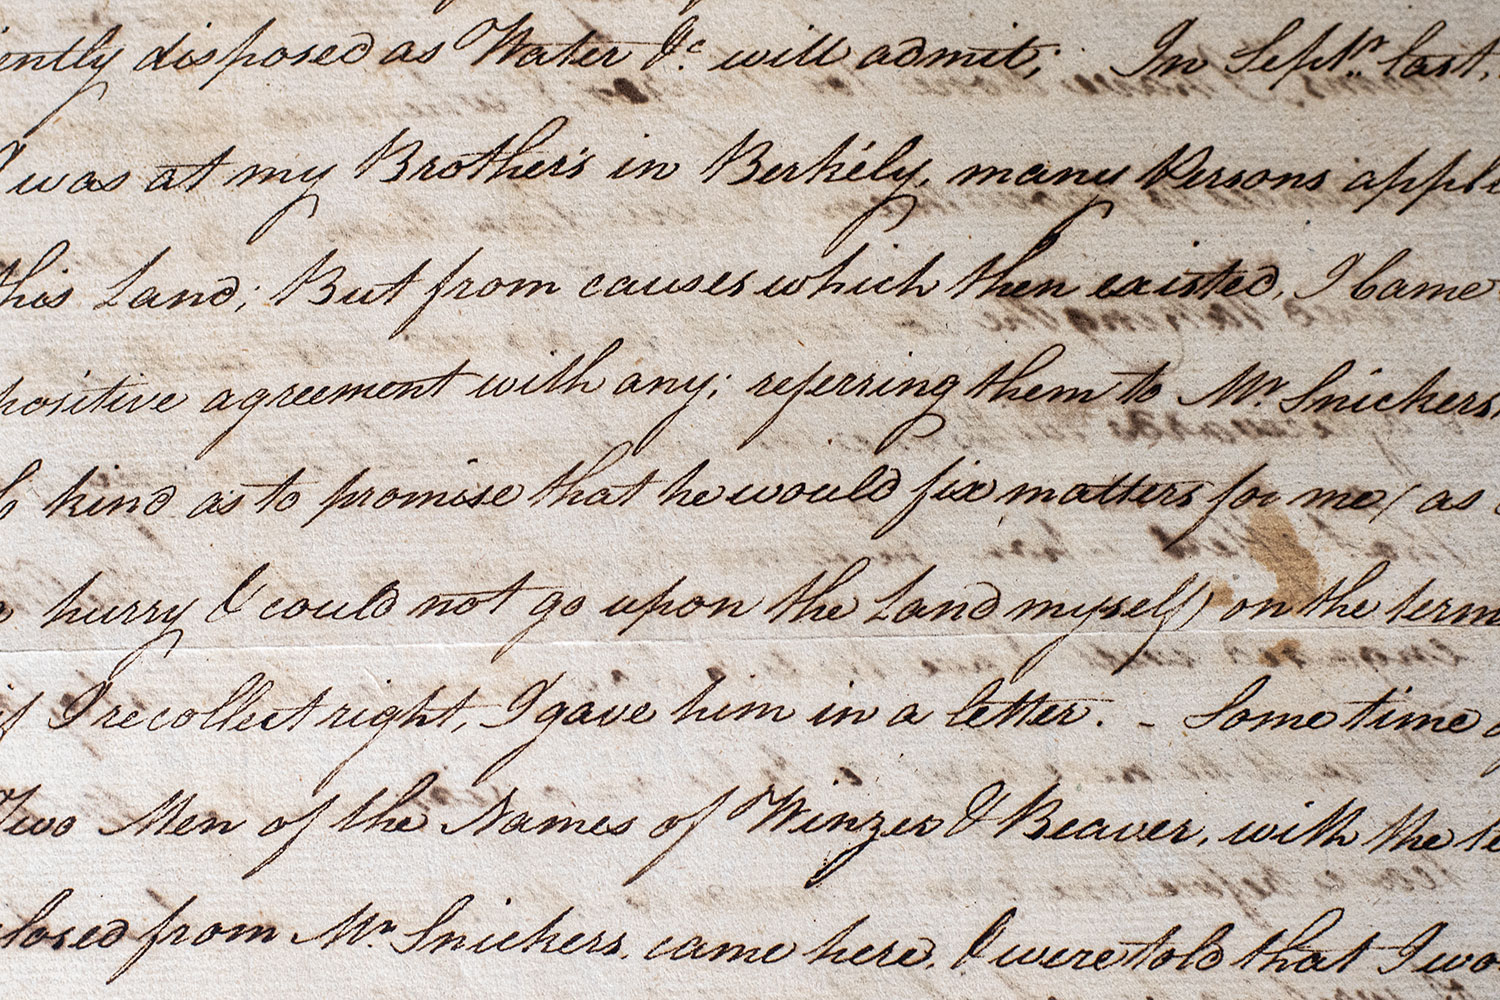 iently disposed as Water &c. will admit; In Septr. last,
I was at my Brother's in Berkély, many Persons appli
this Land; But from causes which then existed, I came
positive agreement with any; referring them to Mr. Snickers,
kind as to promise that he would fix matters for me (as
hurry I could not go upon the Land myself) on the term
if I recollect right, I gave him in a letter. - Some time
Two Men of the Names of Winzer & Beaver, with the le
closed from Mr. Snickers, came here, & were told that I wo